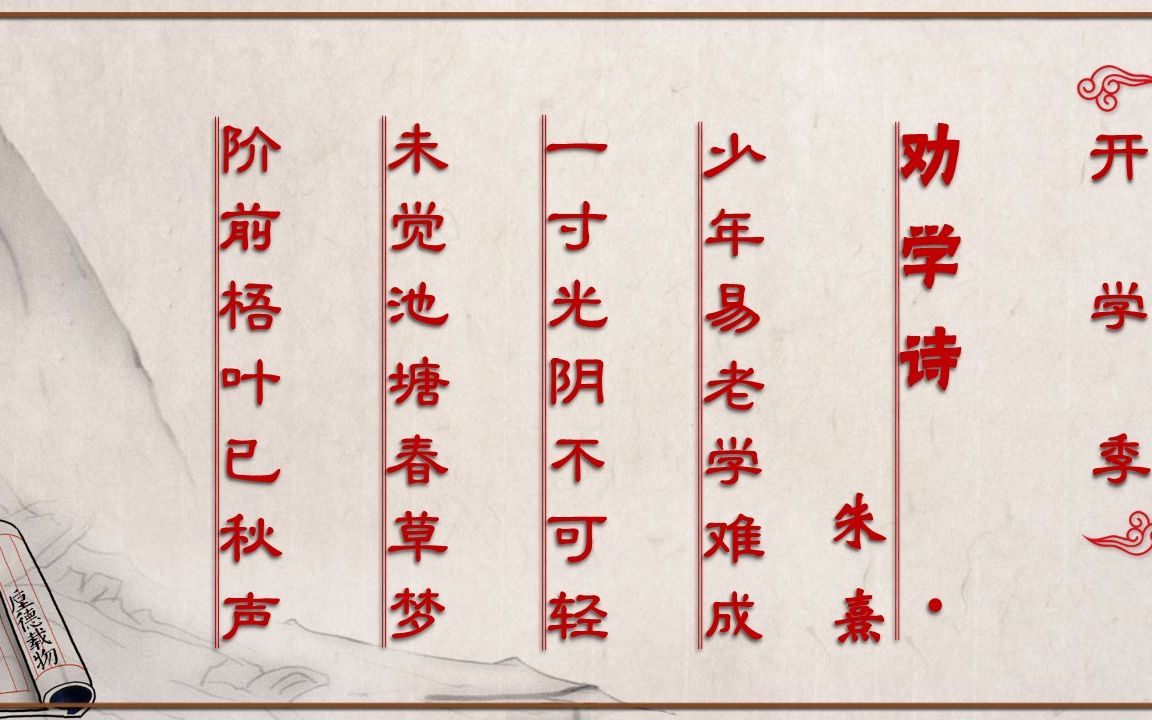 开学季
劝学诗·
朱熹
少年易老学难成
一寸光阴不可轻
未觉池塘春草梦
阶前梧叶已秋声
厚德载物